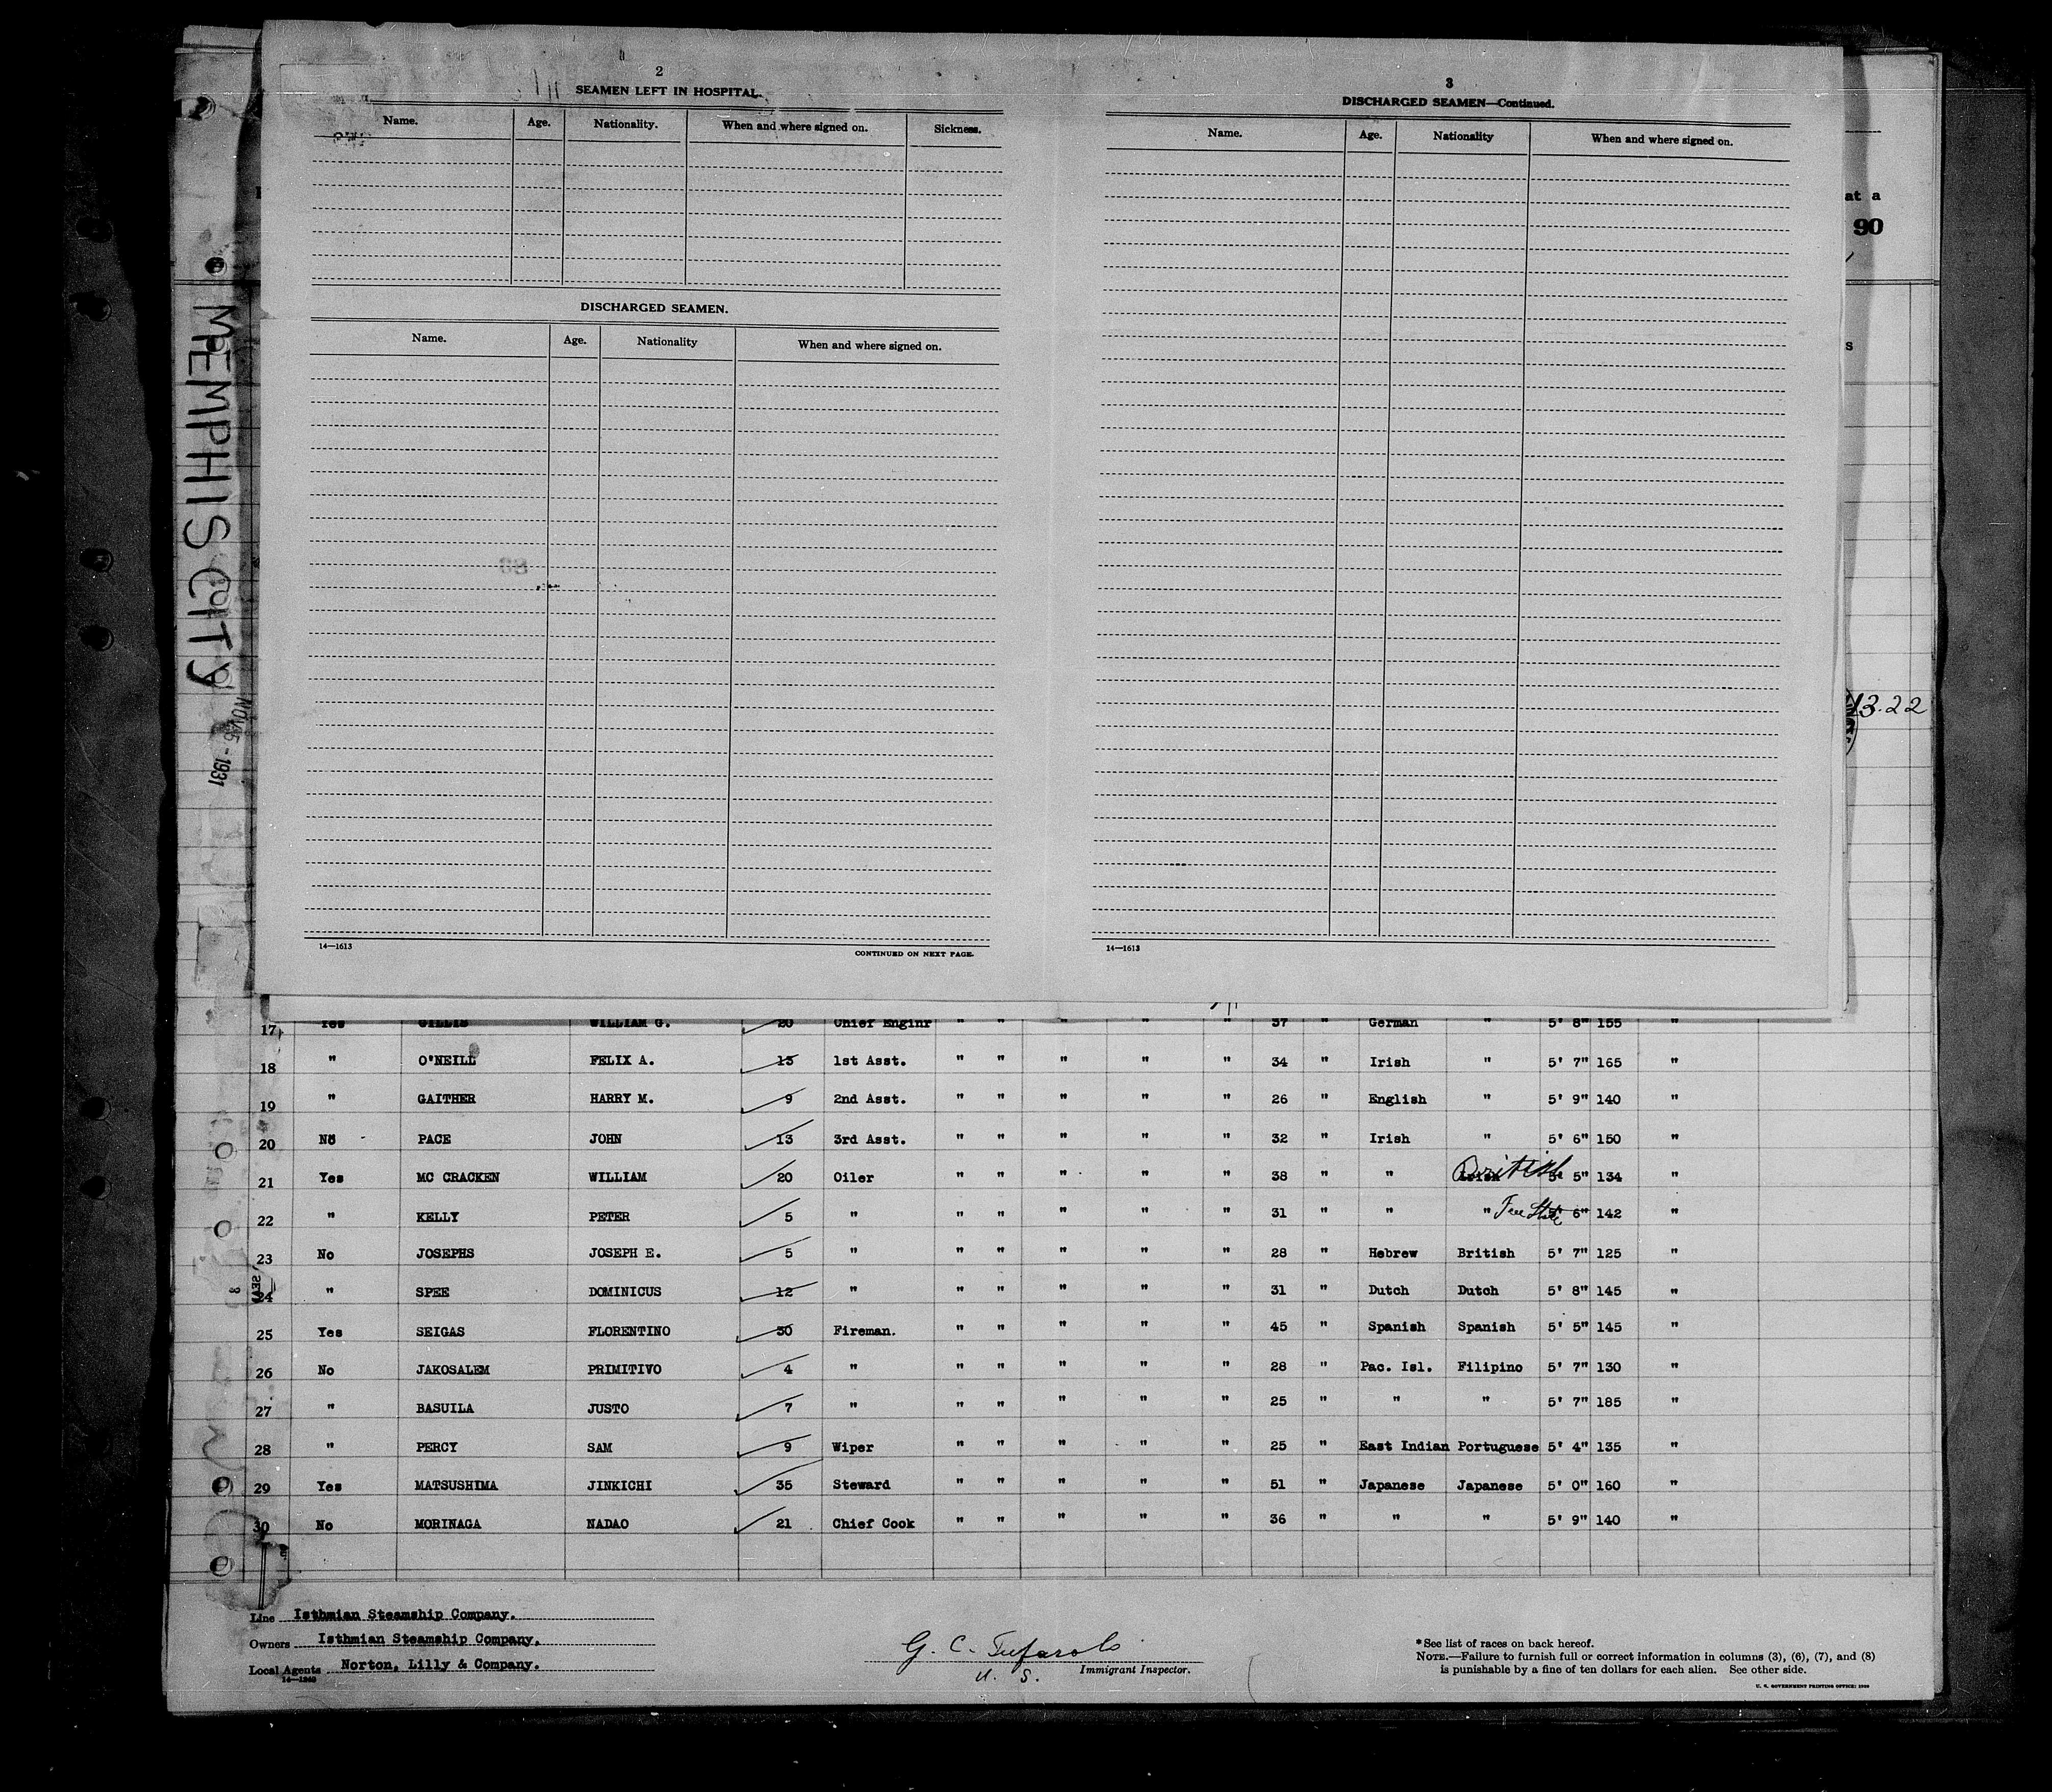 2
SEAMEN LEFT IN HOSPITAL.
Name. Age. Nationality. When and where signed on. Sickness.
DISCHARGED SEAMEN.
Name. Age. Nationality When and where signed on.
14—1613
CONTINUED ON NEXT PAGE.
3
DISCHARGED SEAMEN—Continued.
Name. Age. Nationality When and where signed on.
14—1613
at a
90
s
13.22
MEMPHIS CITY
NOV 5 - 1931
17 Yes GILLIS WILLIAM G. 20 Chief Enginr " " " " " 37 " German " 5' 8" 155 "
18 " O'NEILL FELIX A. 13 1st Asst. " " " " " 34 " Irish " 5' 7" 165 "
19 " GAITHER HARRY M. 9 2nd Asst. " " " " " 26 " English " 5' 9" 140 "
20 No PACE JOHN 13 3rd Asst. " " " " " 32 " Irish " 5' 6" 150 "
21 Yes MC CRACKEN WILLIAM 20 Oiler " " " " " 38 " " British 5' 5" 134 "
22 " KELLY PETER 5 " " " " " " 31 " " " Free State 5' 6" 142 "
23 No JOSEPHS JOSEPH E. 5 " " " " " " 28 " Hebrew British 5' 7" 125 "
24 " SPEE DOMINICUS 12 " " " " " " 31 " Dutch Dutch 5' 8" 145 "
25 Yes SEIGAS FLORENTINO 30 Fireman. " " " " " 45 " Spanish Spanish 5' 5" 145 "
26 No JAKOSALEM PRIMITIVO 4 " " " " " " 28 " Pac. Isl. Filipino 5' 7" 130 "
27 " BASUILA JUSTO 7 " " " " " " 25 " " " 5' 7" 185 "
28 " PERCY SAM 9 Wiper " " " " " 25 " East Indian Portuguese 5' 4" 135 "
29 Yes MATSUSHIMA JINKICHI 35 Steward " " " " " 51 " Japanese Japanese 5' 0" 160 "
30 No MORINAGA NADAO 21 Chief Cook " " " " " 36 " " " 5' 9" 140 "
Line Isthmian Steamship Company.
Owners Isthmian Steamship Company.
Local Agents Norton, Lilly & Company.
G. C.
U. S. Immigrant Inspector.
*See list of races on back hereof.
NOTE.—Failure to furnish full or correct information in columns (3), (6), (7), and (8)
is punishable by a fine of ten dollars for each alien. See other side.